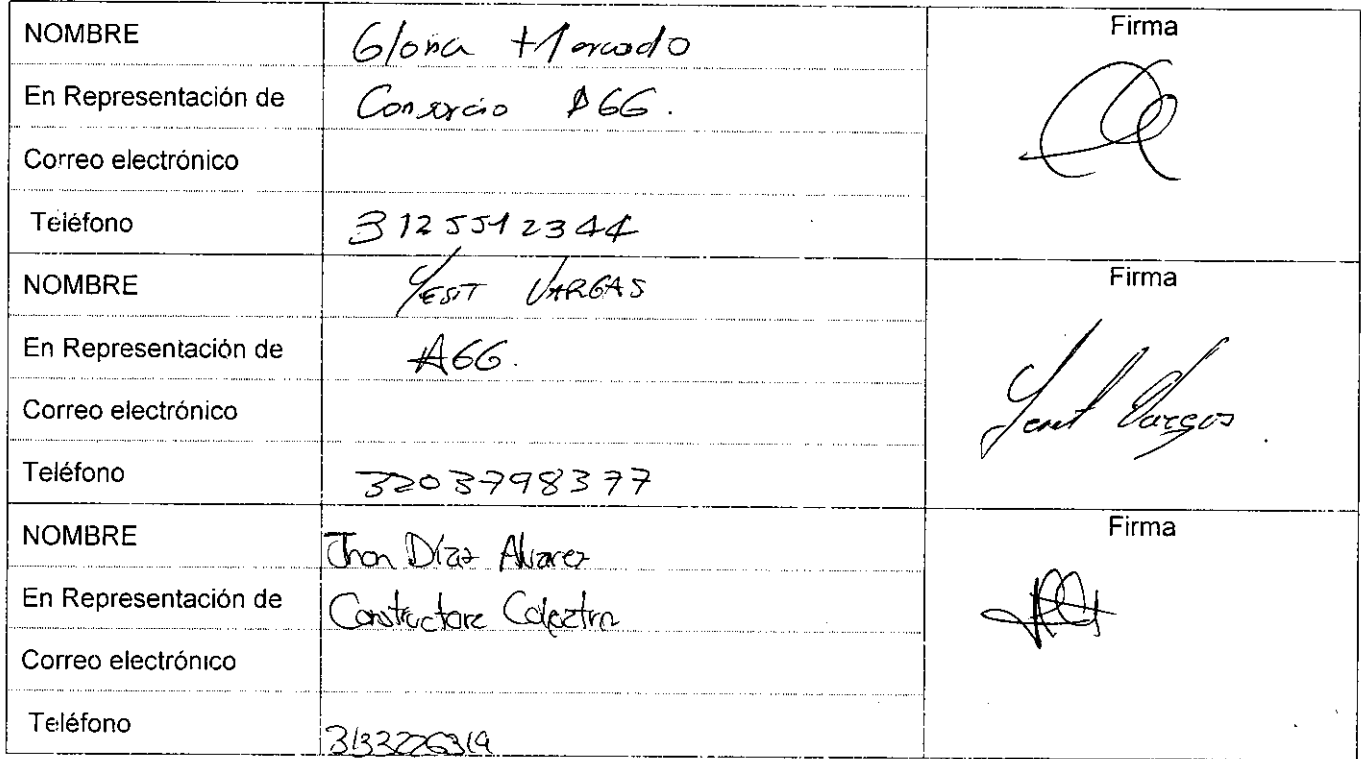 NOMBRE Gloria Mercado Firma
En Representación de Consorcio AGG.
Correo electrónico
Teléfono 3125512344
NOMBRE YESIT VARGAS Firma
En Representación de AGG.
Correo electrónico Yesit Vargas
Teléfono 3203798377
NOMBRE Jhon Díaz Alvarez Firma
En Representación de
Correo electrónico
Teléfono